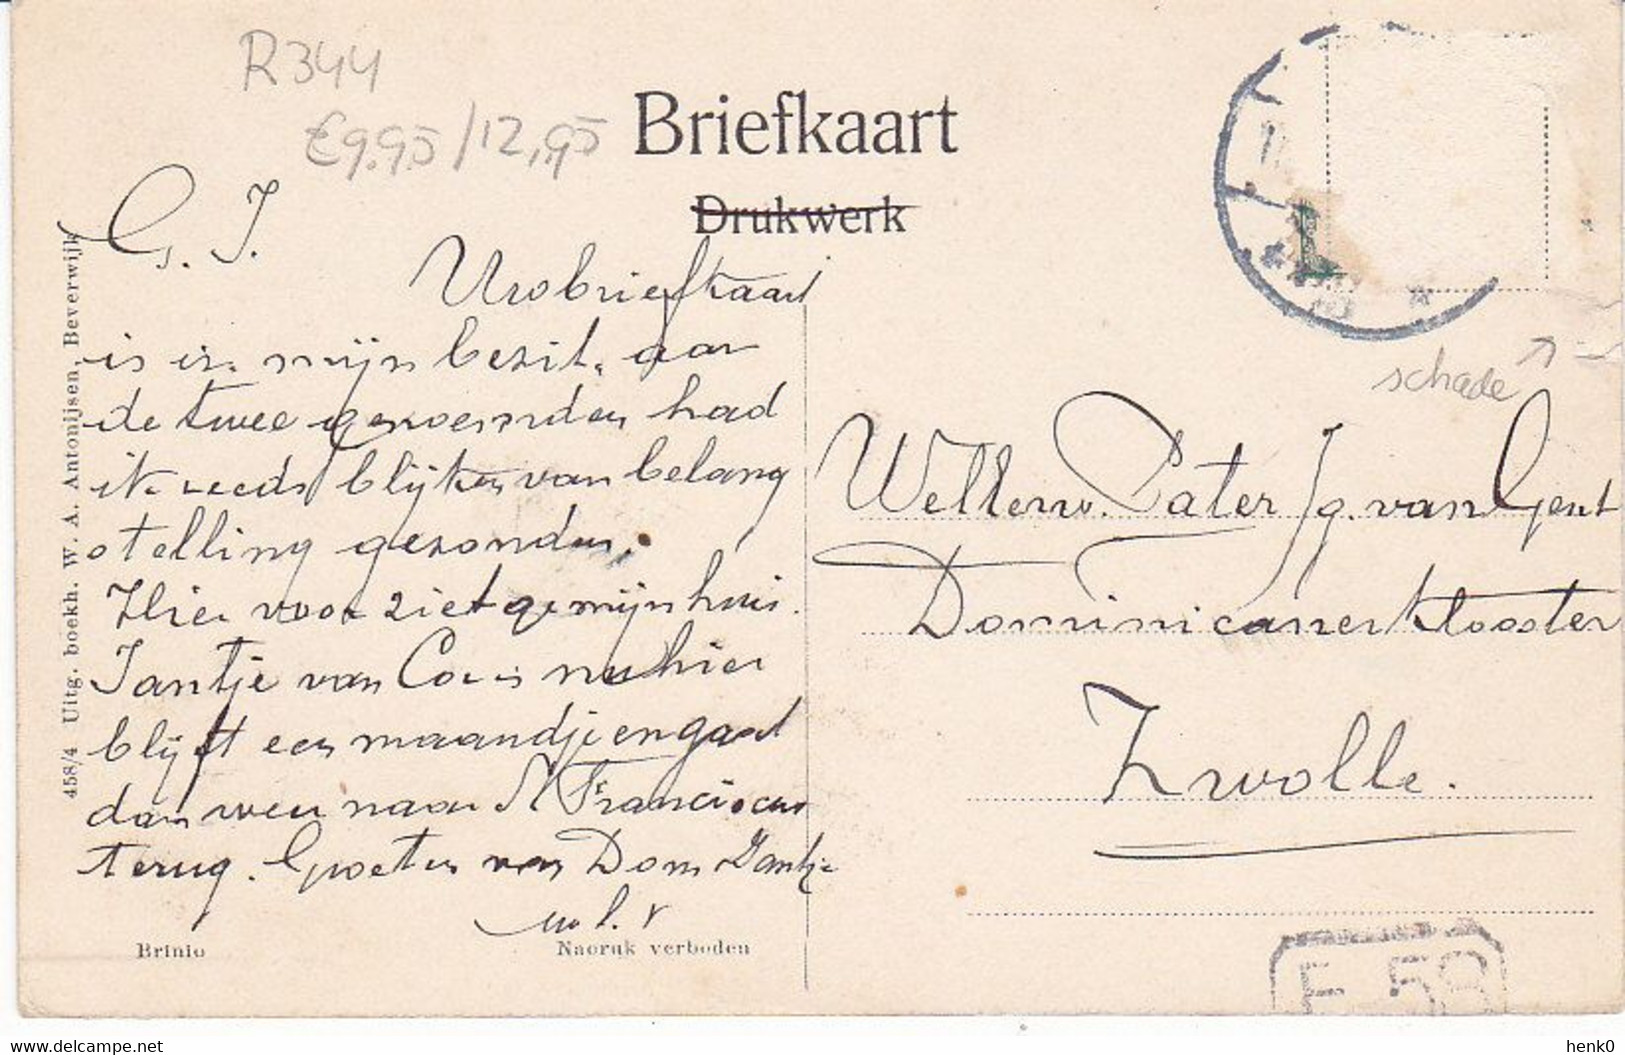 R344
€9.95/12,95
Briefkaart
Drukwerk
G. J.
Uwe briefkaart
is in mijn bezit, aan
de twee genoemden had
ik reeds blijken van belang
stelling gezonden.
Hier voor ziet ge mijn huis.
Jantje van Cees nu hier
blijft een maandje en gaat
dan weer naar St Franciscus
terug. Groeten van Dom Jantje
schade
Weleerw. Pater Jg. van Gent
Dominicanerklooster
Zwolle.
458/4 Uitg. boekh. W. A. Antonijsen, Beverwijk
Brinio
Nadruk verboden
F 59
delcampe.net
henk0